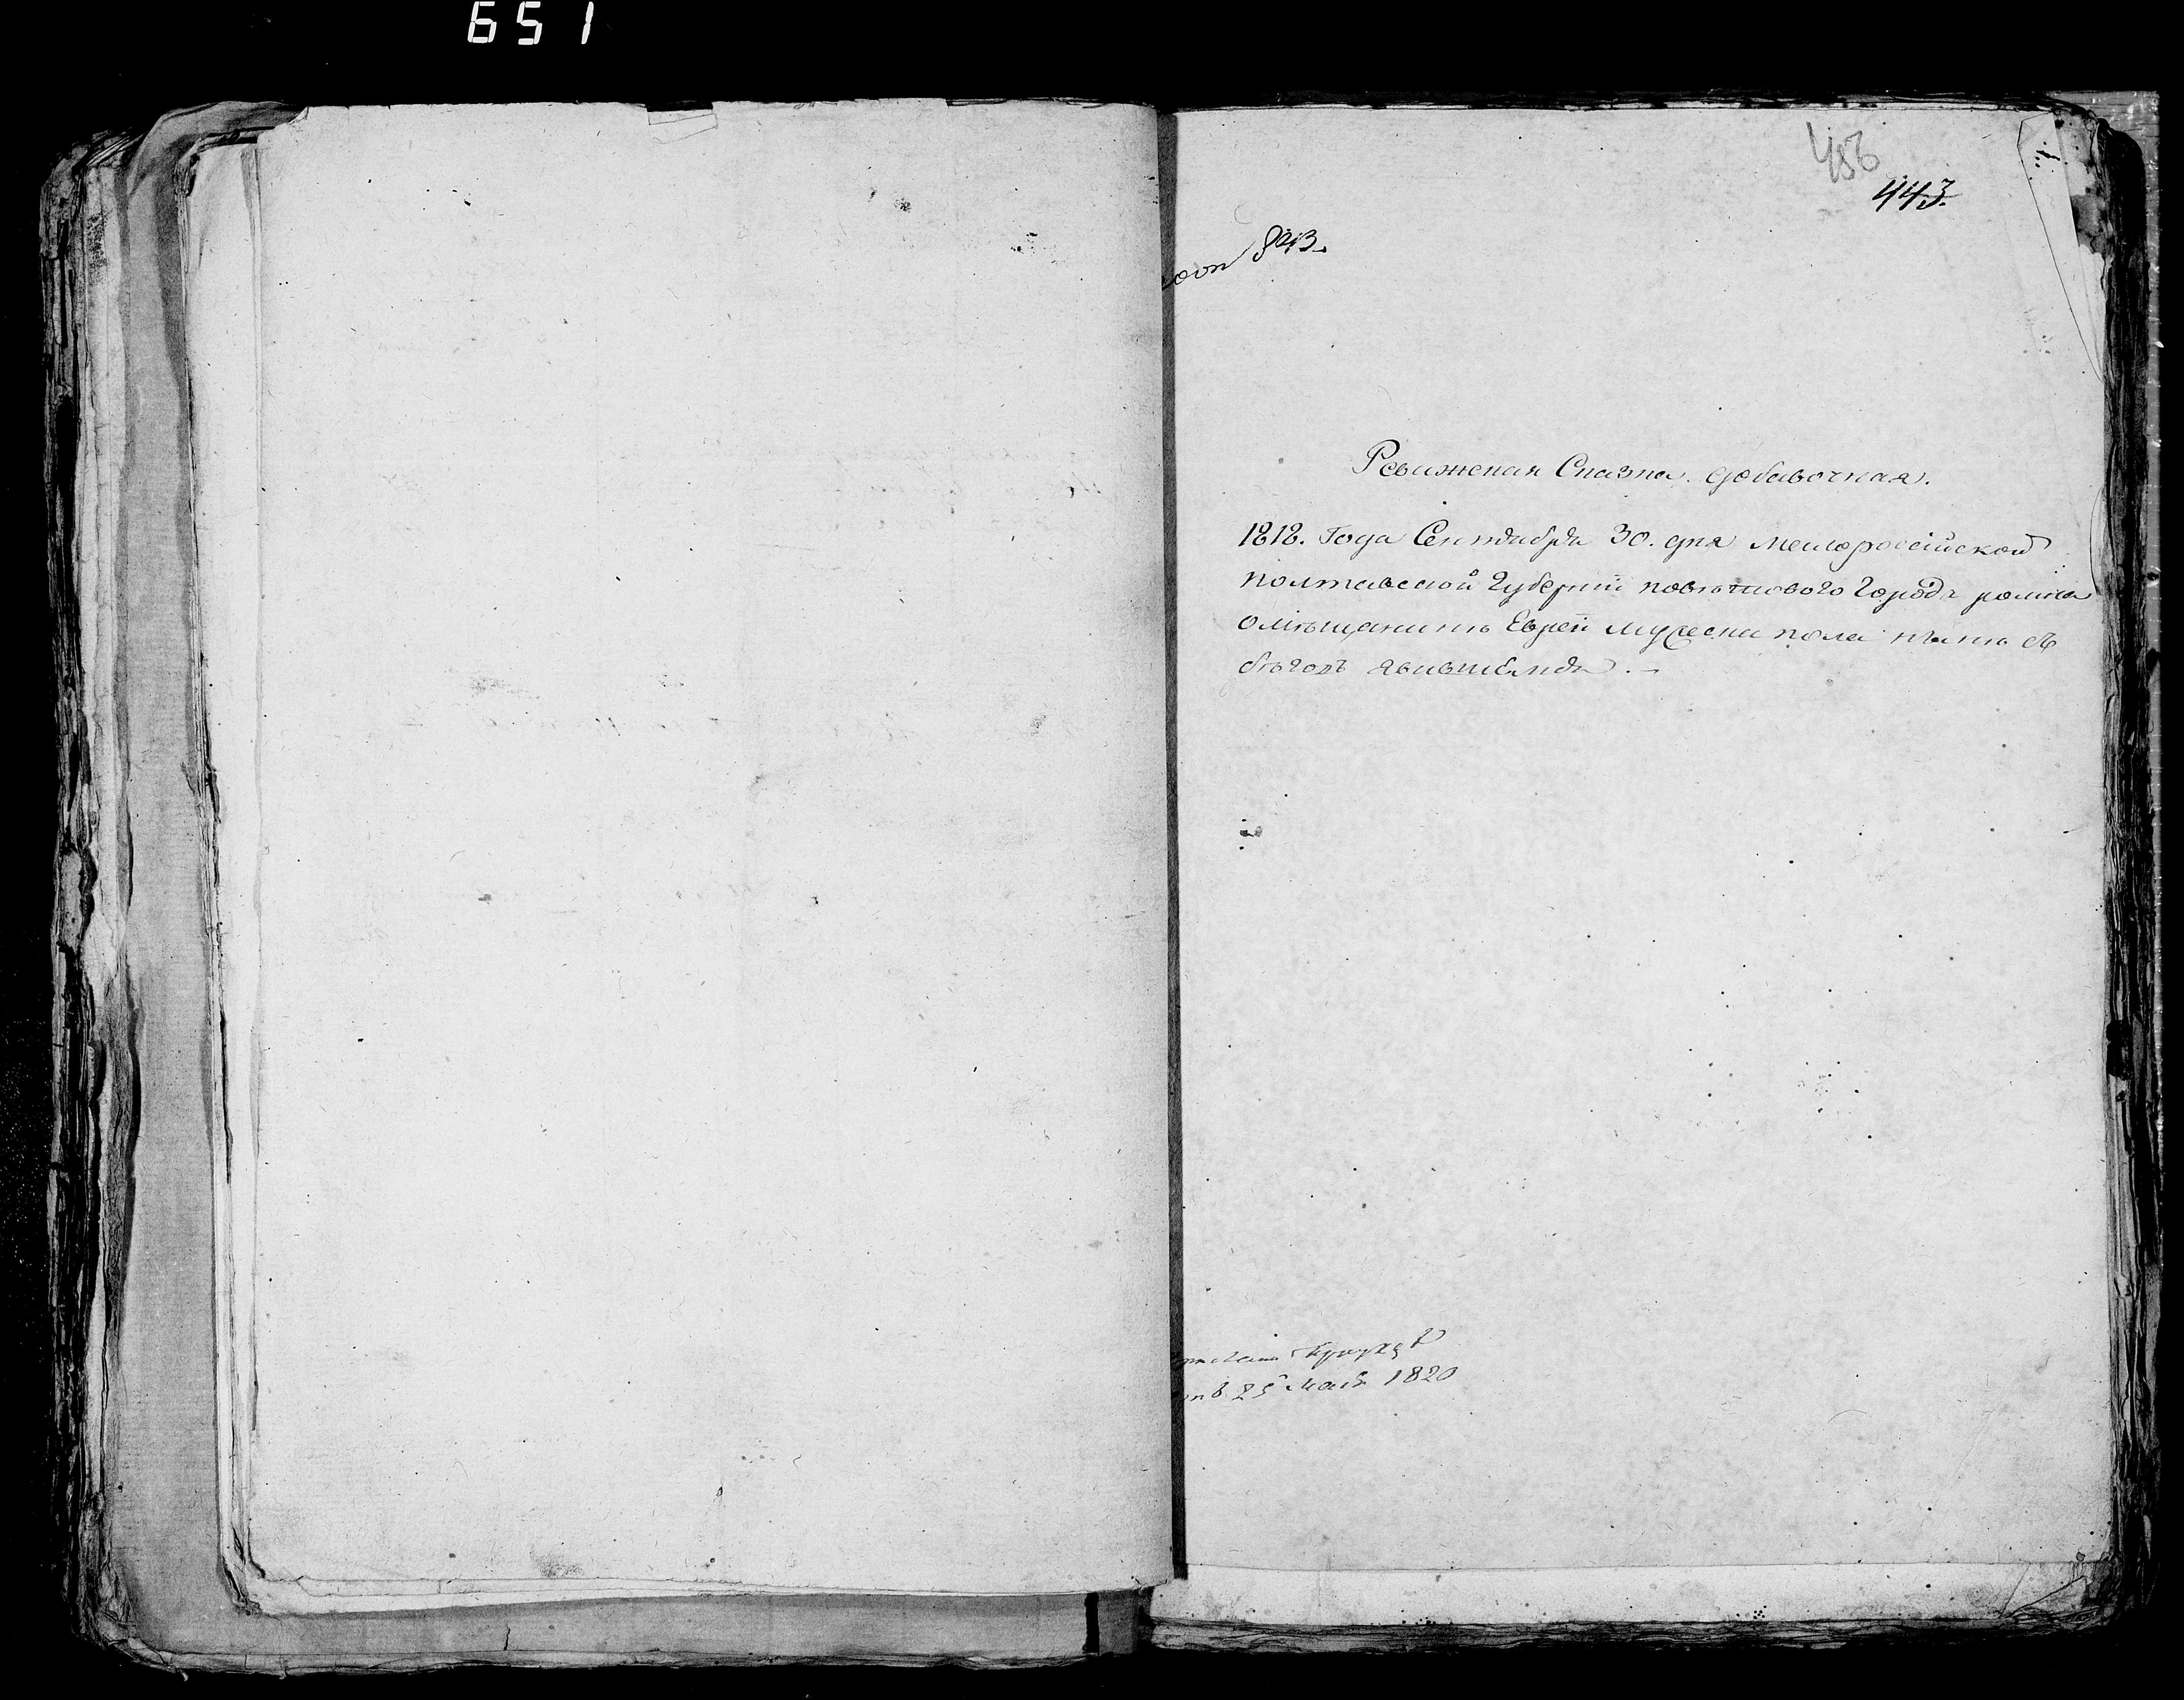 651
456
443.
843.
Ревижская Сказка. добавочная.
1818. Года Сентября 30. дня малороссійской
полтавской Губерніи повѣтового города ромна
о мѣщанинѣ Евреи мужеска пола
съ
бѣговъ явившемся. –
25 мая 1820